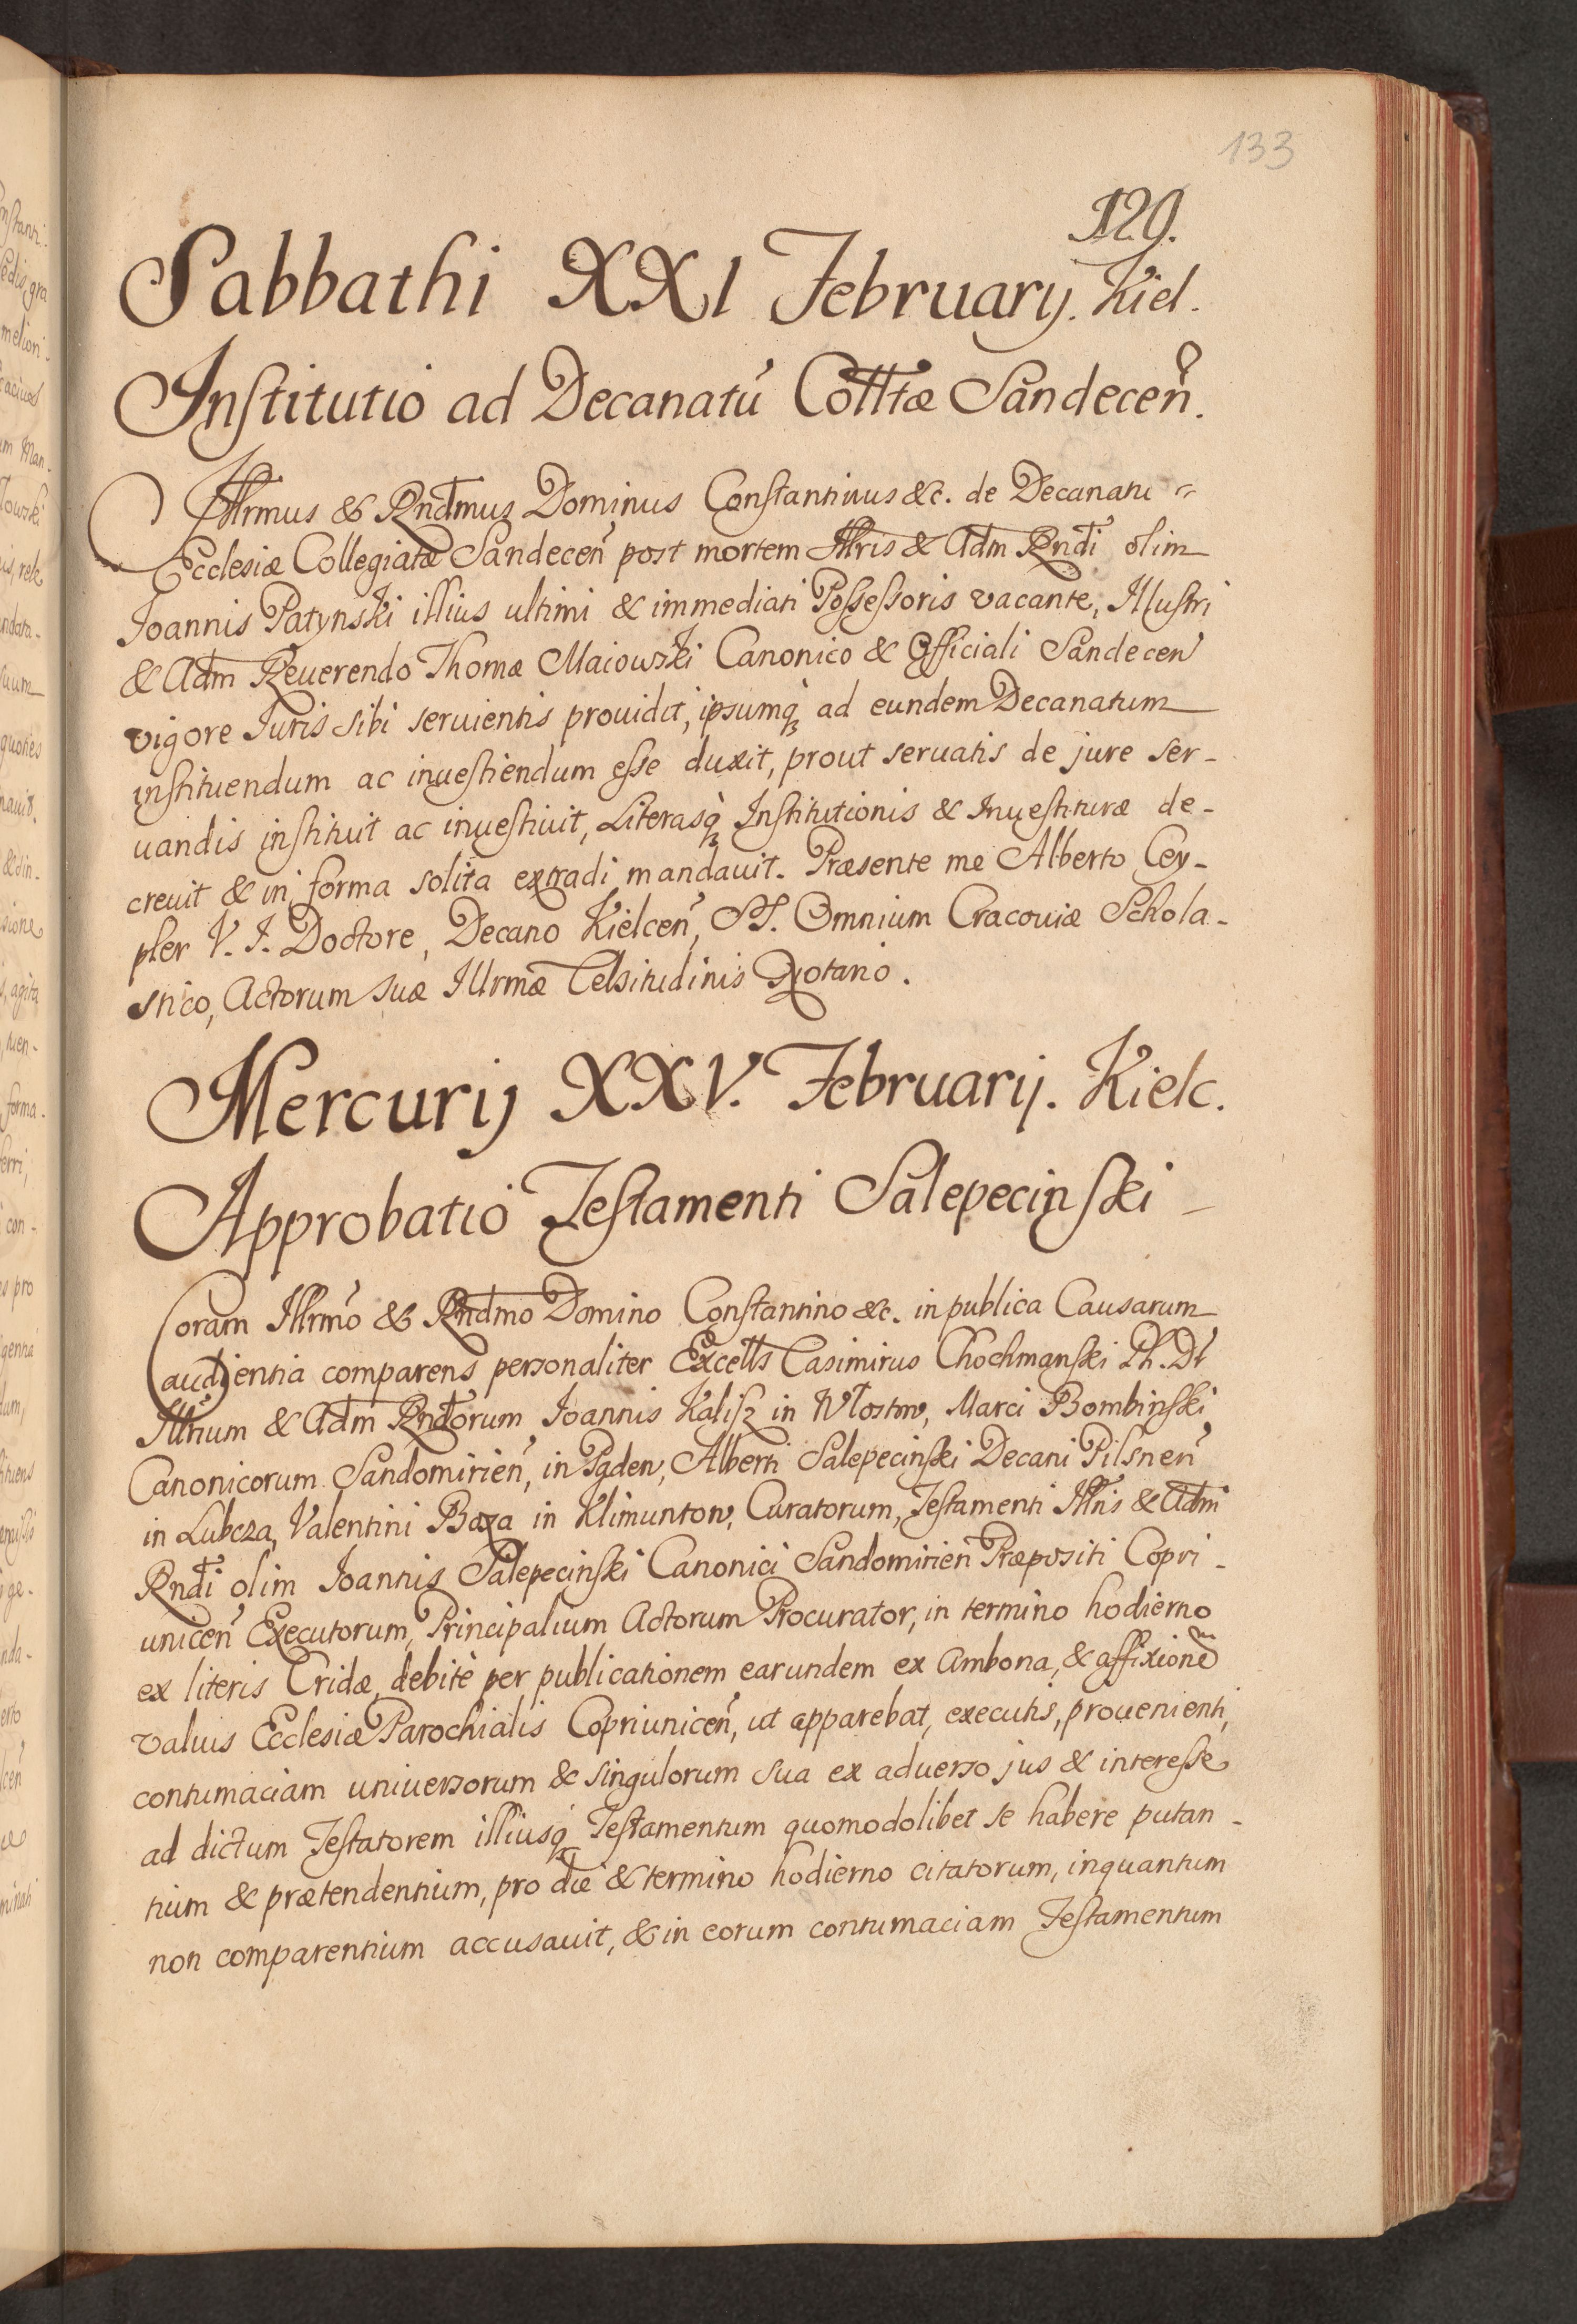 133
129.
Sabbathi XXI February. Kiel.
Institutio ad Decanatũ Colltæ Sandeceñ.
Illrmus & Rndmus Dominus Constantinus &c. de Decanatu
Ecclesiæ Collegiatæ Sandeceñ post mortem Illris & Adm Rndi olim
Joannis Patynski illius ultimi & immediati Possessoris vacante, Illustri
& Adm Reuerendo Thomæ Maiowski Canonico & Officiali Sandeceñ
vigore Juris sibi seruientis prouidit, ipsumq; ad eundem Decanatum
instituendum ac inuestiendum esse duxit, prout seruatis de jure ser-
uandis instituit ac inuestiuit, Literasq; Institutionis & Inuestituræ de-
creuit & in forma solita extradi mandauit. Præsente me Alberto Cey-
pler V. J. Doctore, Decano Kielceñ, SS. Omnium Cracouiæ Schola-
stico, Actorum suæ Illrmæ Celsitudinis Notario.
Mercurij XXV. Februarij. Kielc.
Approbatio Testamenti Salepecinski -
Coram Illrmo & Rndmo Domino Constantino &c. in publica Causarum
audientia comparens personaliter Excells Casimirus Chochmanski Ph. Dr
Illrium & Adm Rndorum Joannis Kalisz in Wlostow, Marci Bombinski
Canonicorum Sandomirieñ, in Pgden, Alberti Salepecinski Decani Pilsneñ
in Lubcza, Valentini Baza in Klimuntow, Curatorum, Testamenti Illris & Adm
Rndi olim Joannis Salepecinski Canonici Sandomirieñ Præpositi Copri-
uniceñ Executorum, Principalium Actorum Procurator, in termino hodierno
ex literis Cridæ, debitè per publicationem earundem ex Ambona, & affixionē
valuis Ecclesiæ Parochialis Copriuniceñ, ut apparebat, executis, prouenienti,
contumaciam uniuersorum & singulorum sua ex aduerso jus & interesse
ad dictum Testatorem illiusq; Testamentum quomodolibet se habere putan-
tium & prætendentium, pro die & termino hodierno citatorum, inquantum
non comparentium accusauit, & in eorum contumaciam Testamentum